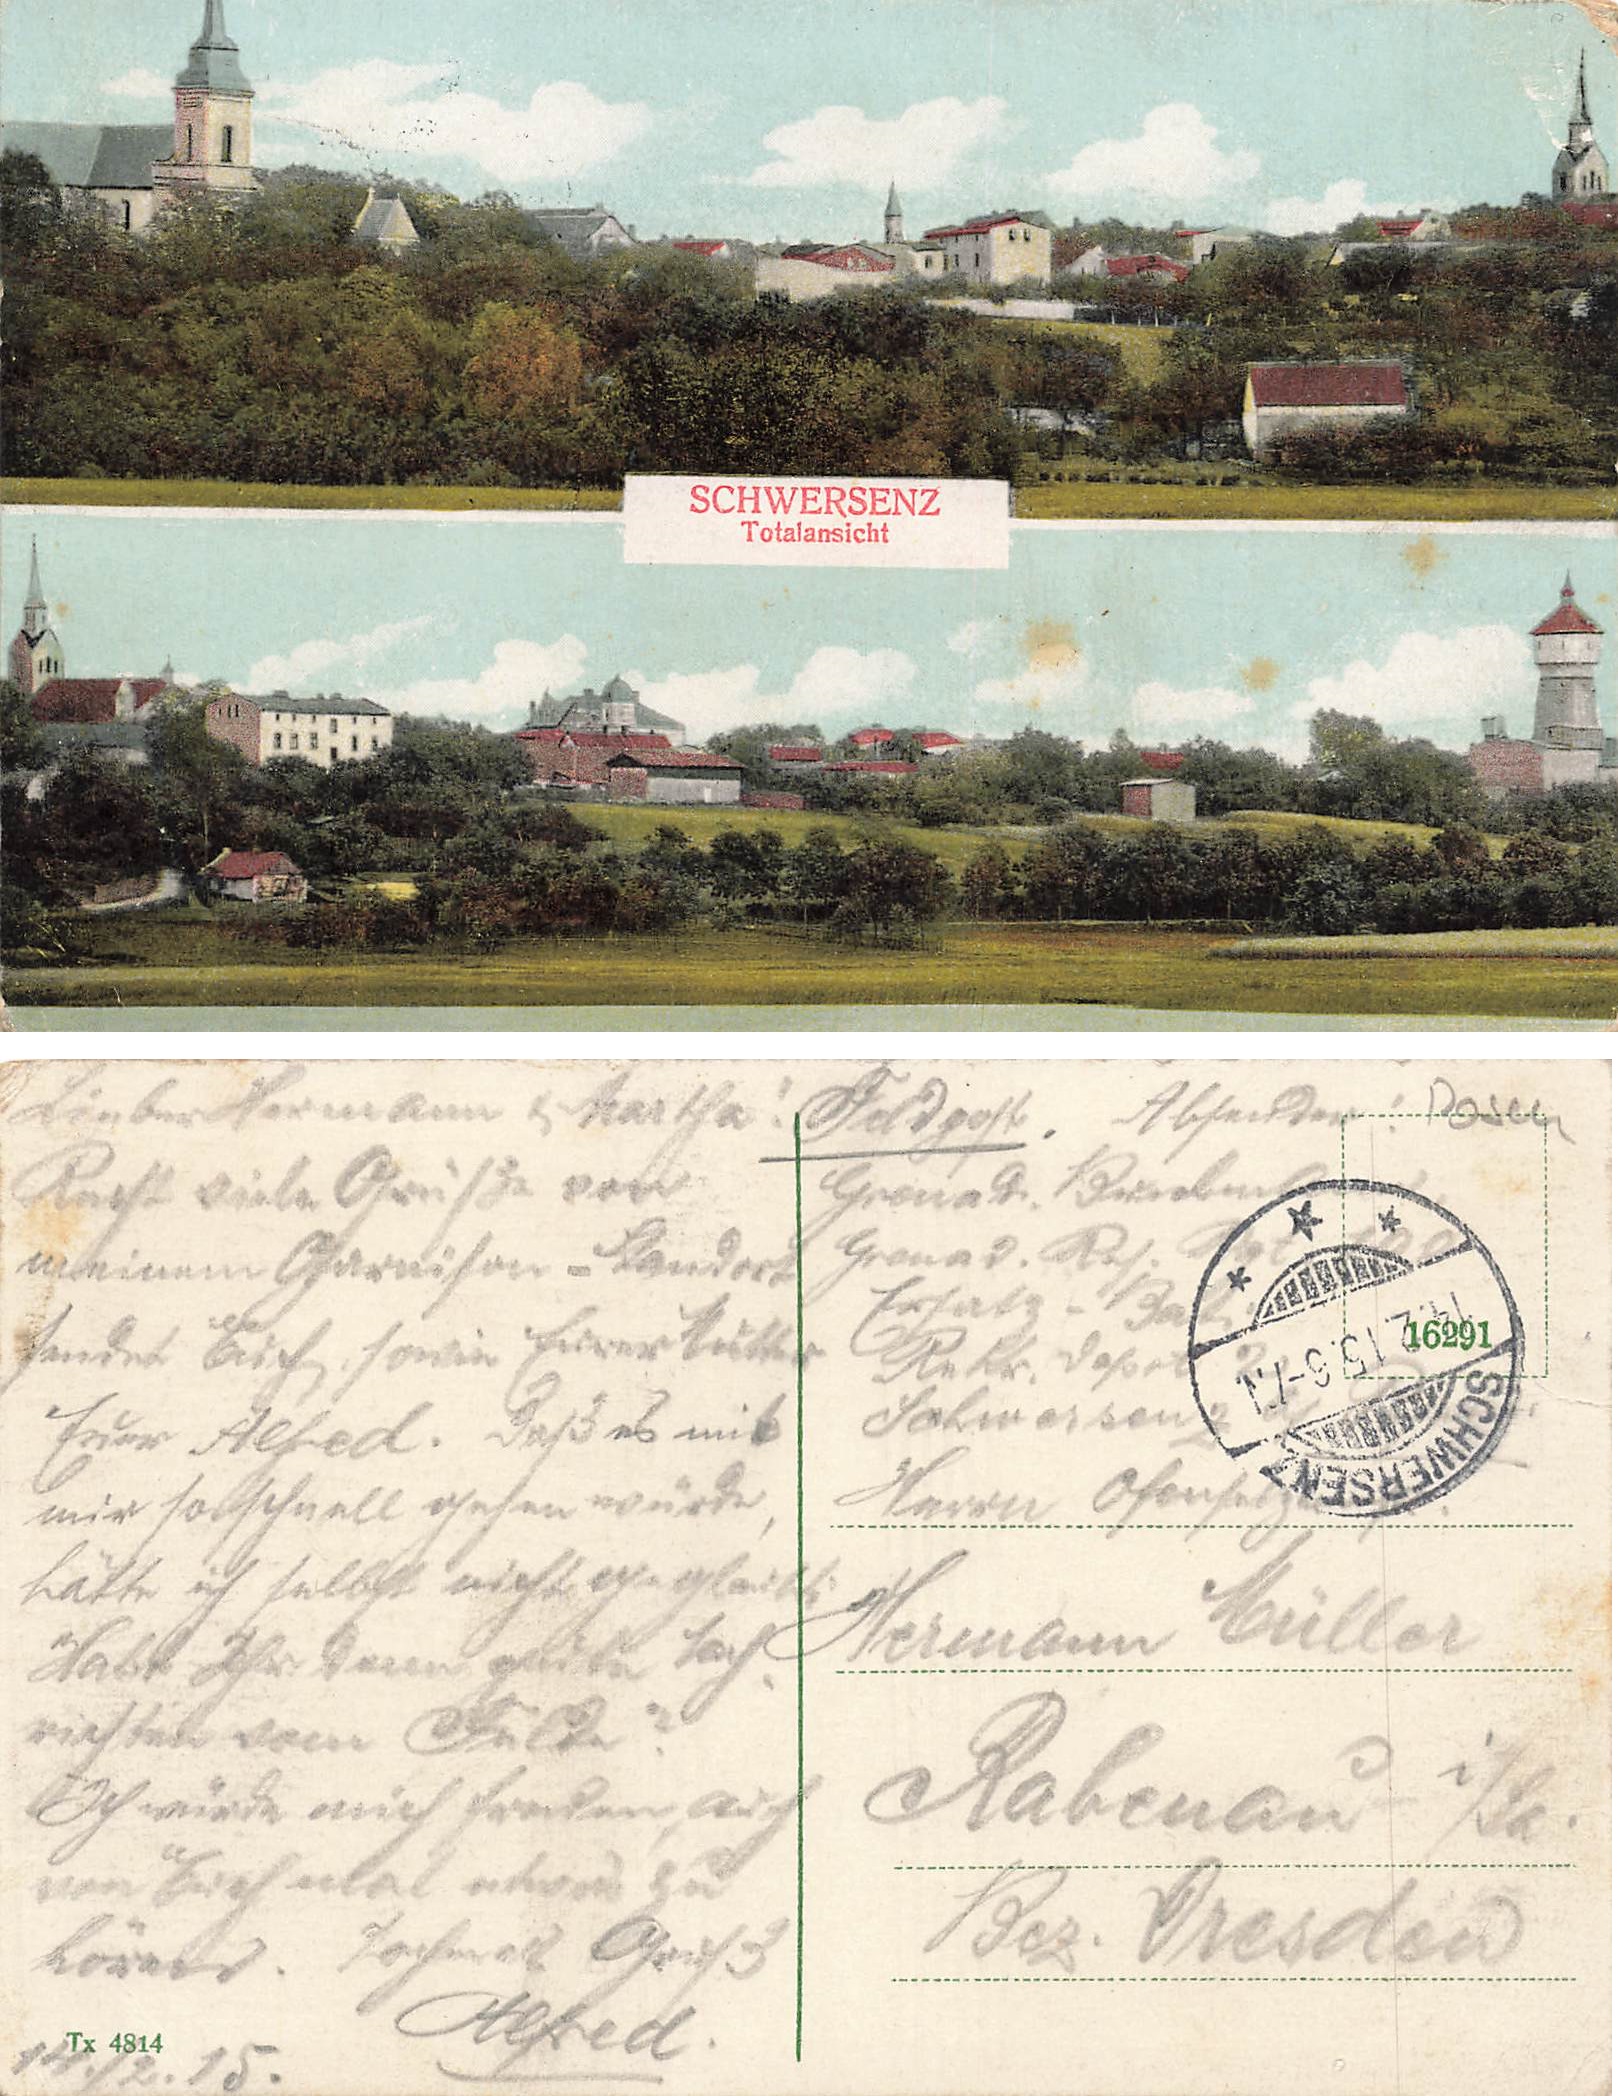 SCHWERSENZ
Totalansicht
Lieber Hermann & Martha!
Recht viele Grüße von
meinem Garnison-Standort
sendet Euch, sowie Eurer Mutter
Euer Alfred. Daß es mit
mir so schnell gehen würde,
hätte ich selbst nicht geglaubt.
Habt Ihr denn gute Nach-
richten vom Felde?
Ich würde mich freuen, auch
von Euch mal etwas zu
hören. Nochmals Gruß
Alfred.
14./2.15.
Tx 4814
Feldpost. Absender: Posen
Grenad.
Grenad. Res. Rgt. 100
Ersatz-Batl.
Rekr. Depot
Schwersenz
16291
14.2.15.6-7N
SCHWERSENZ
Herrn
Hermann Müller
Rabenau i/Sa.
Bez. Dresden